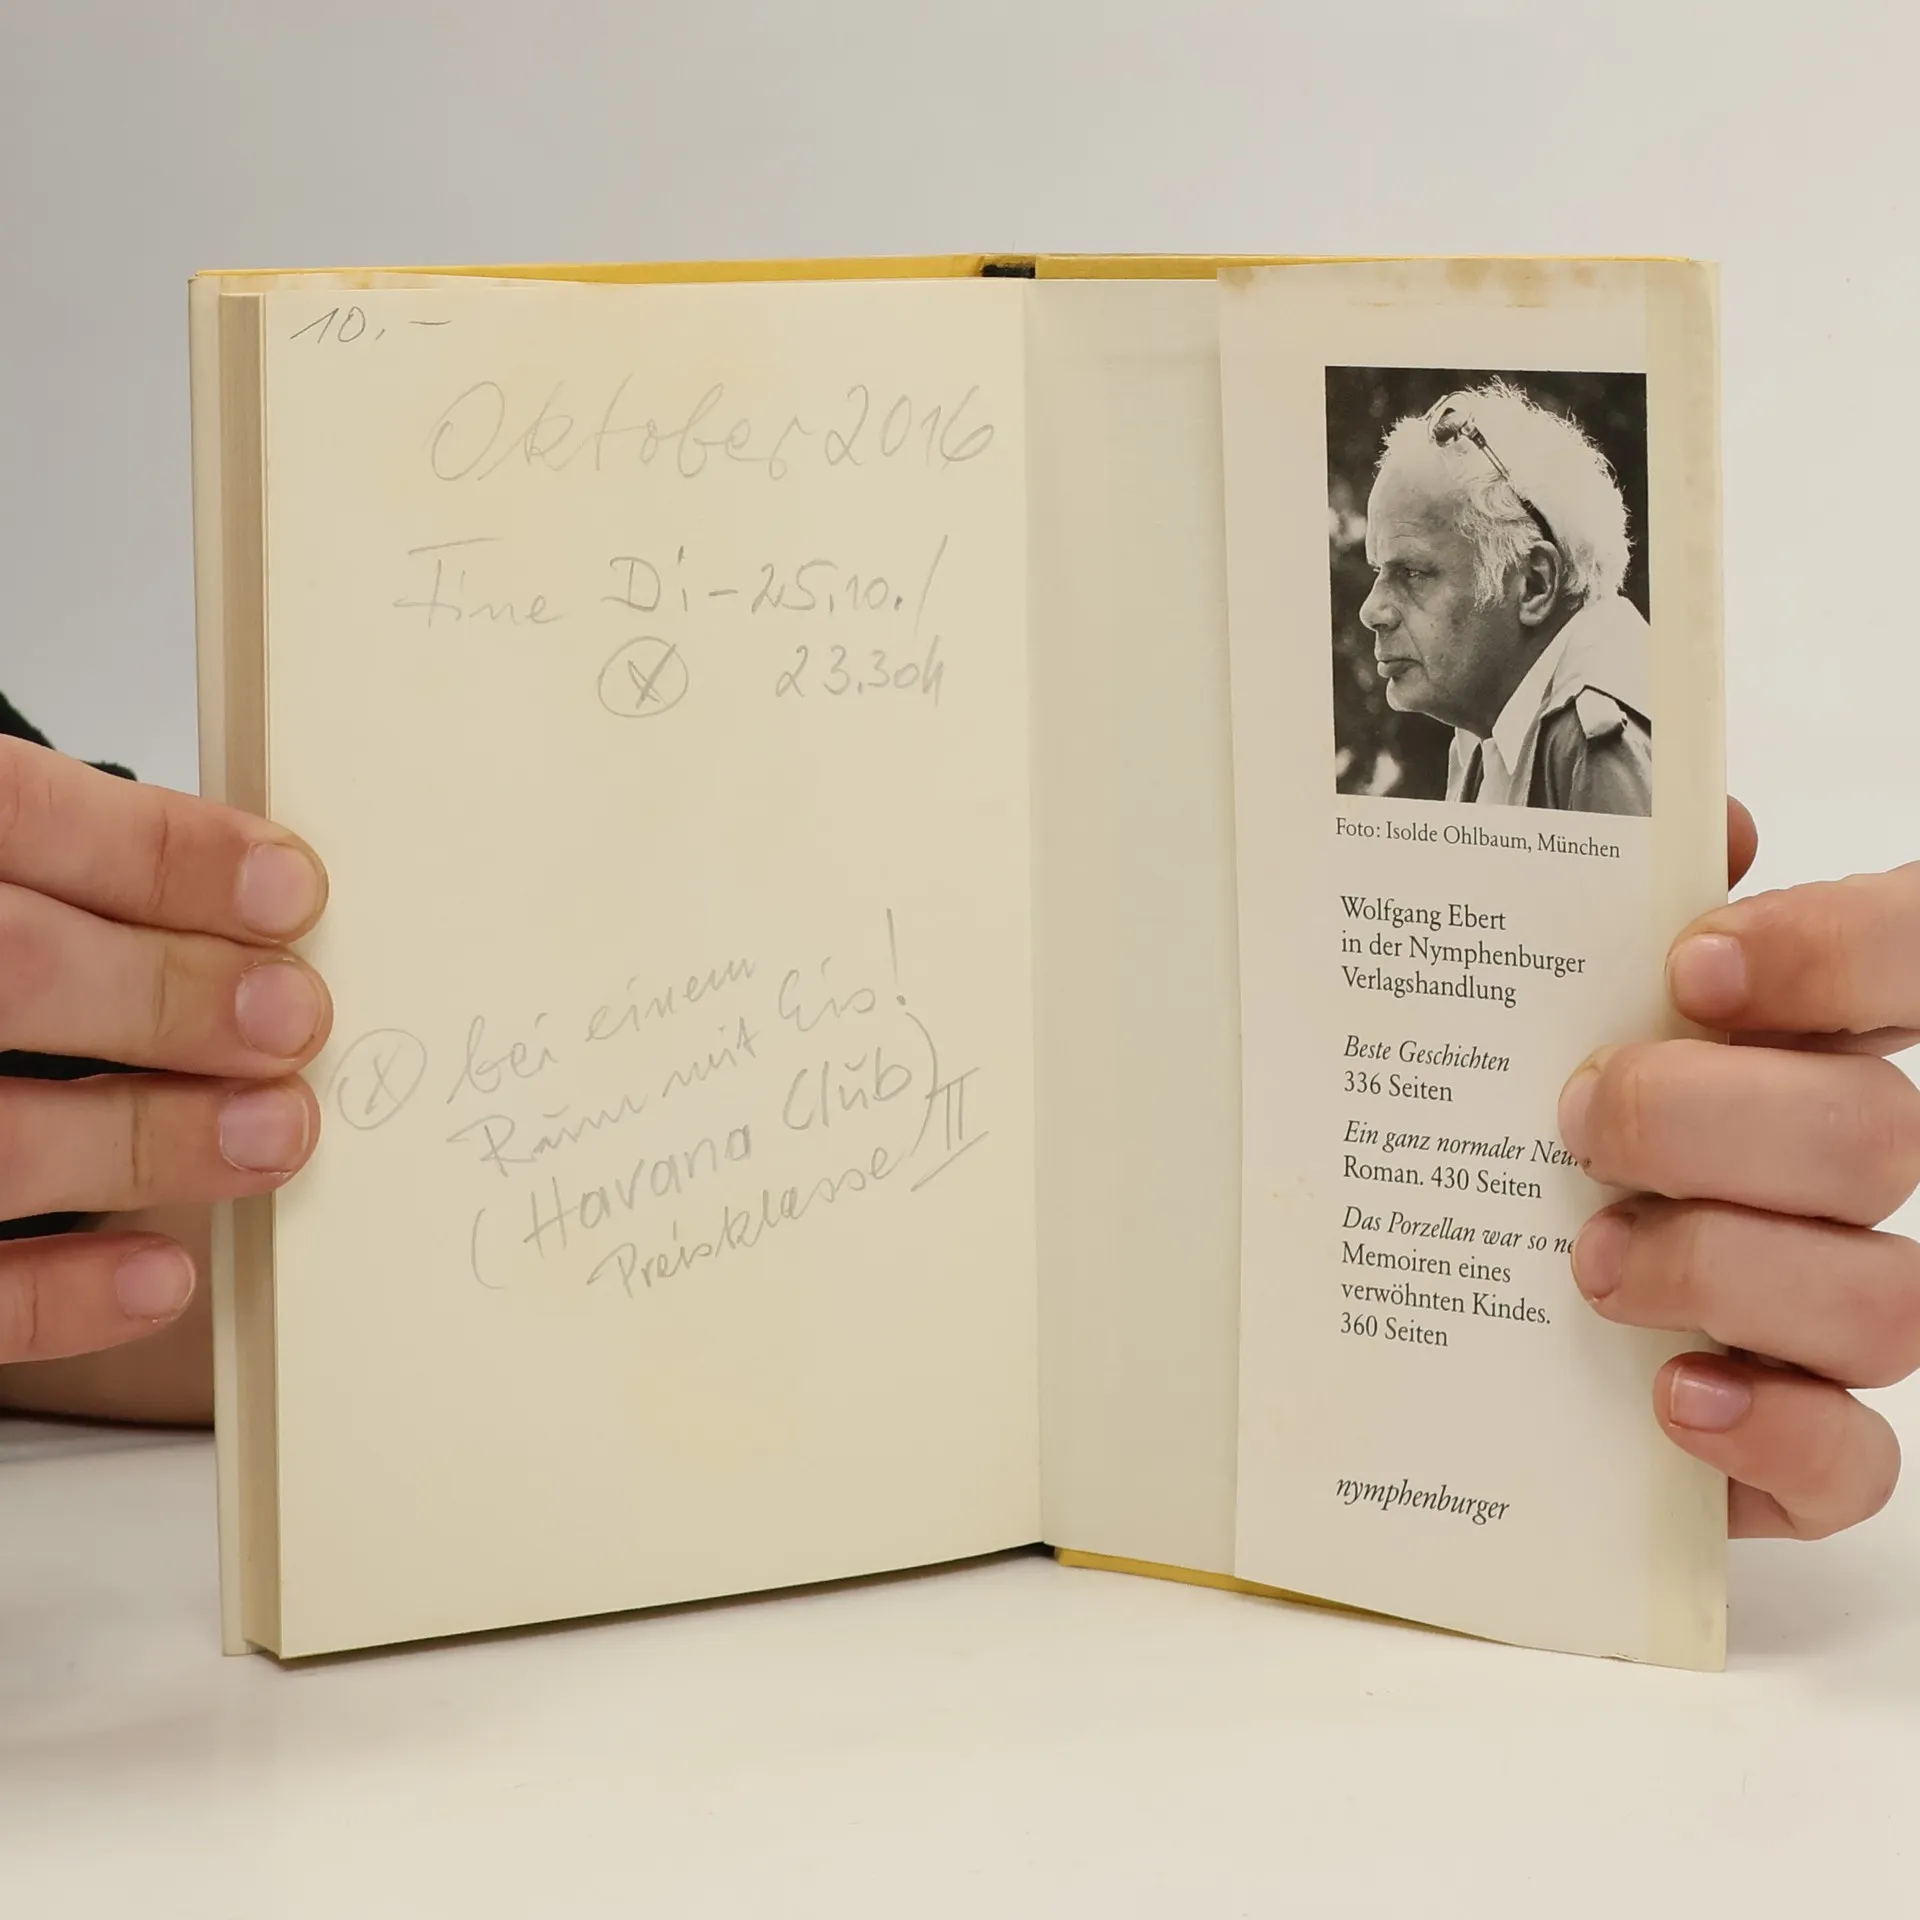 10.–
Oktober 2016
Fine Di – 25.10./
ⓧ 23.30h
ⓧ bei einem
Rum mit Eis!
(Havana Club)
Preisklasse II
Foto: Isolde Ohlbaum, München
Wolfgang Ebert
in der Nymphenburger
Verlagshandlung
Beste Geschichten
336 Seiten
Ein ganz normaler
Roman. 430 Seiten
Das Porzellan war so
Memoiren eines
verwöhnten Kindes.
360 Seiten
nymphenburger